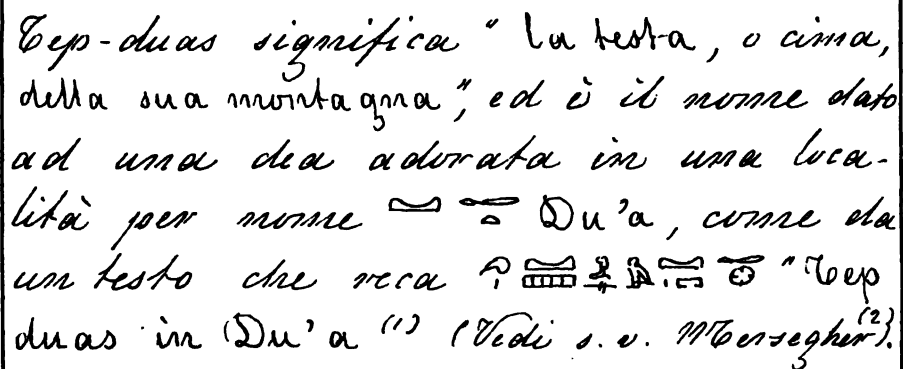 Tep-duas significa "la testa, o cima,
della sua montagna", ed è il nome dato
ad una dea adorata in una loca-
lità per nome Du'a, come da
un testo che reca "Tep
duas in Du'a (1) (Vedi s. v. Mersegher (2)).